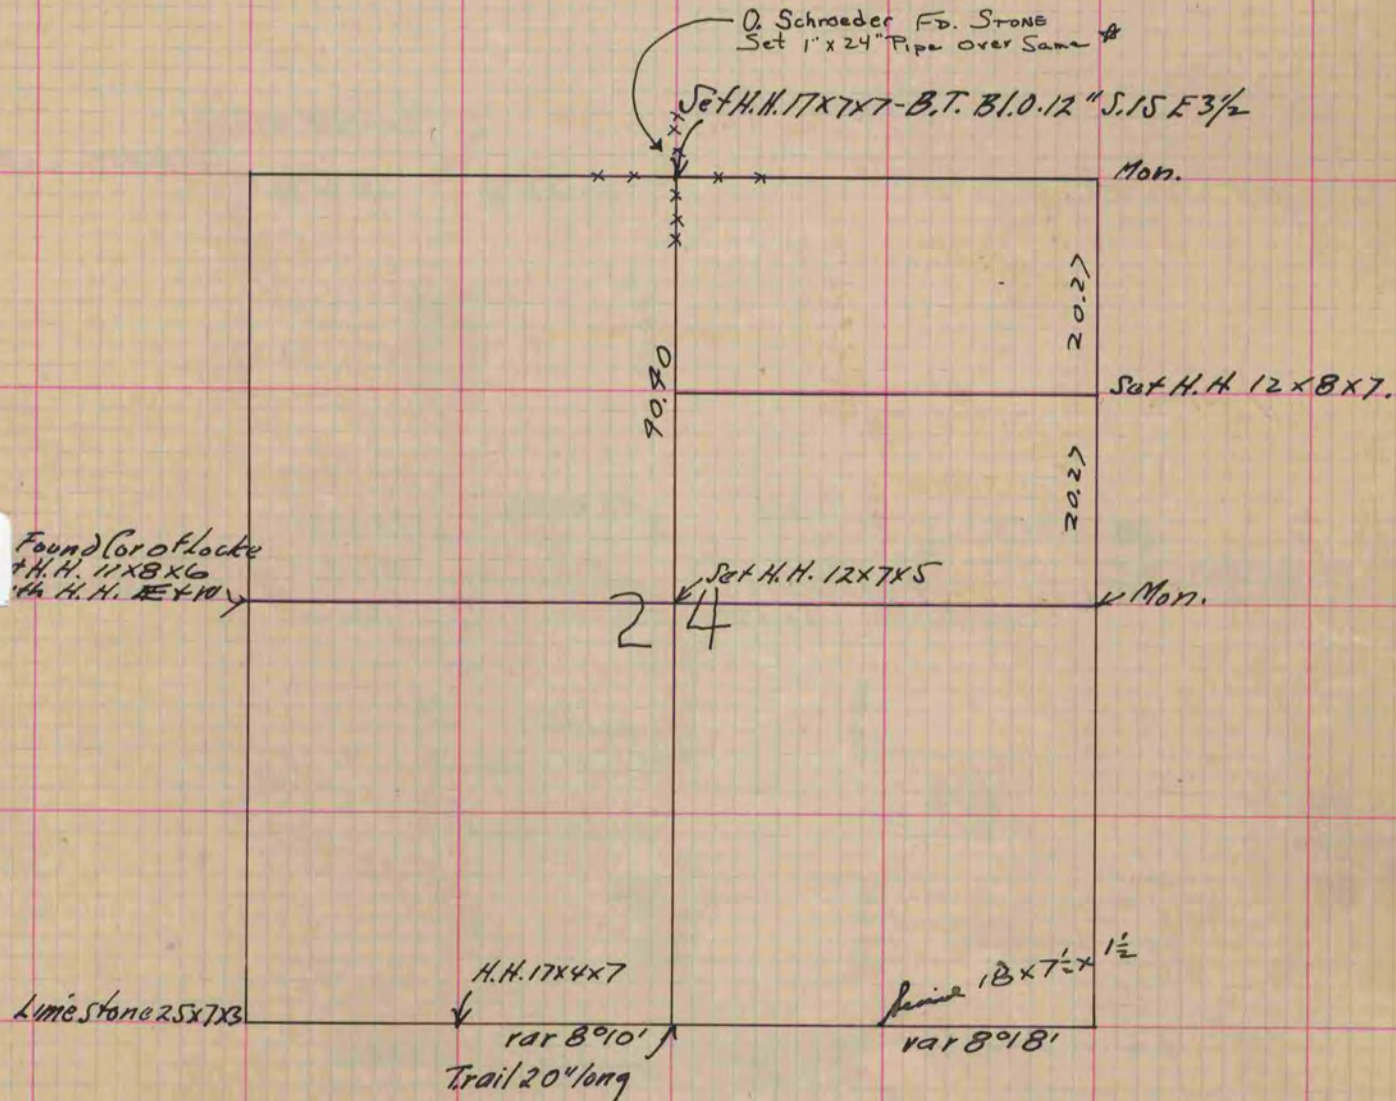 O. Schroeder FD. STONE
Set 1" x 24" Pipe over Same
Set H.H. 17x7x7-B.T. Bl.O. 12" S.15 E 3½
Mon.
20.27
90.40
Set H.H. 12x8x7.
20.27
Found Cor of Locke
H.H. 11x8x6
H.H.
Set H.H. 12x7x5
Mon.
24
H.H. 17x4x7
18x7½x1½
Limestone 25x7x3
var 8°10'
var 8°18'
Trail 20" long